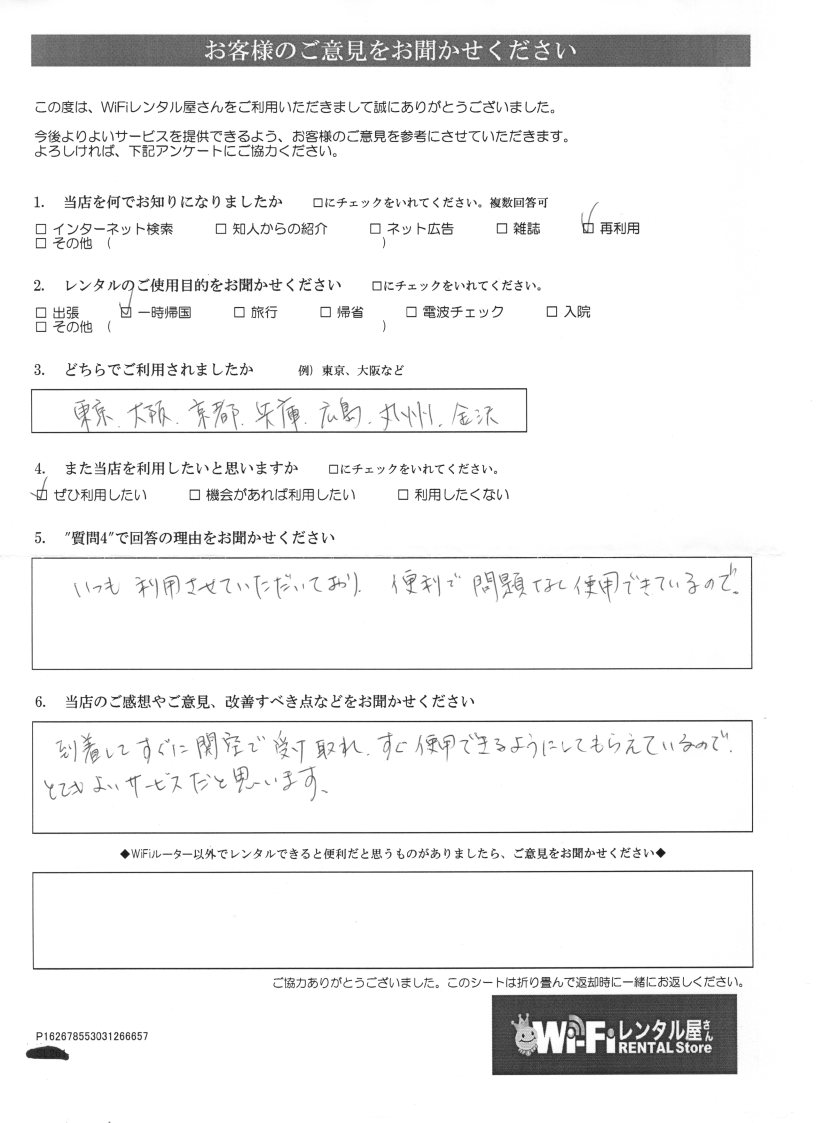 お客様のご意見をお聞かせください
この度は、WiFiレンタル屋さんをご利用いただきまして誠にありがとうございました。
今後よりよいサービスを提供できるよう、お客様のご意見を参考にさせていただきます。
よろしければ、下記アンケートにご協力ください。
1. 当店を何でお知りになりましたか □にチェックをいれてください。複数回答可
□ インターネット検索 □ 知人からの紹介 □ ネット広告 □ 雑誌 ☑ 再利用
□ その他 ( )
2. レンタルのご使用目的をお聞かせください □にチェックをいれてください。
□ 出張 ☑ 一時帰国 □ 旅行 □ 帰省 □ 電波チェック □ 入院
□ その他 ( )
3. どちらでご利用されましたか 例）東京、大阪など
東京、大阪、京都、兵庫、広島、九州、金沢
4. また当店を利用したいと思いますか □にチェックをいれてください。
☑ ぜひ利用したい □ 機会があれば利用したい □ 利用したくない
5. ″質問4″で回答の理由をお聞かせください
いつも利用させていただいており、便利で問題なし使用できているので。
6. 当店のご感想やご意見、改善すべき点などをお聞かせください
到着してすぐに関空で受け取れ、すぐ使用できるようにしてもらえているので、
とてもよいサービスだと思います。
◆WiFiルーター以外でレンタルできると便利だと思うものがありましたら、ご意見をお聞かせください◆
ご協力ありがとうございました。このシートは折り畳んで返却時に一緒にお返しください。
P162678553031266657
Wi-Fiレンタル屋さん
RENTAL Store